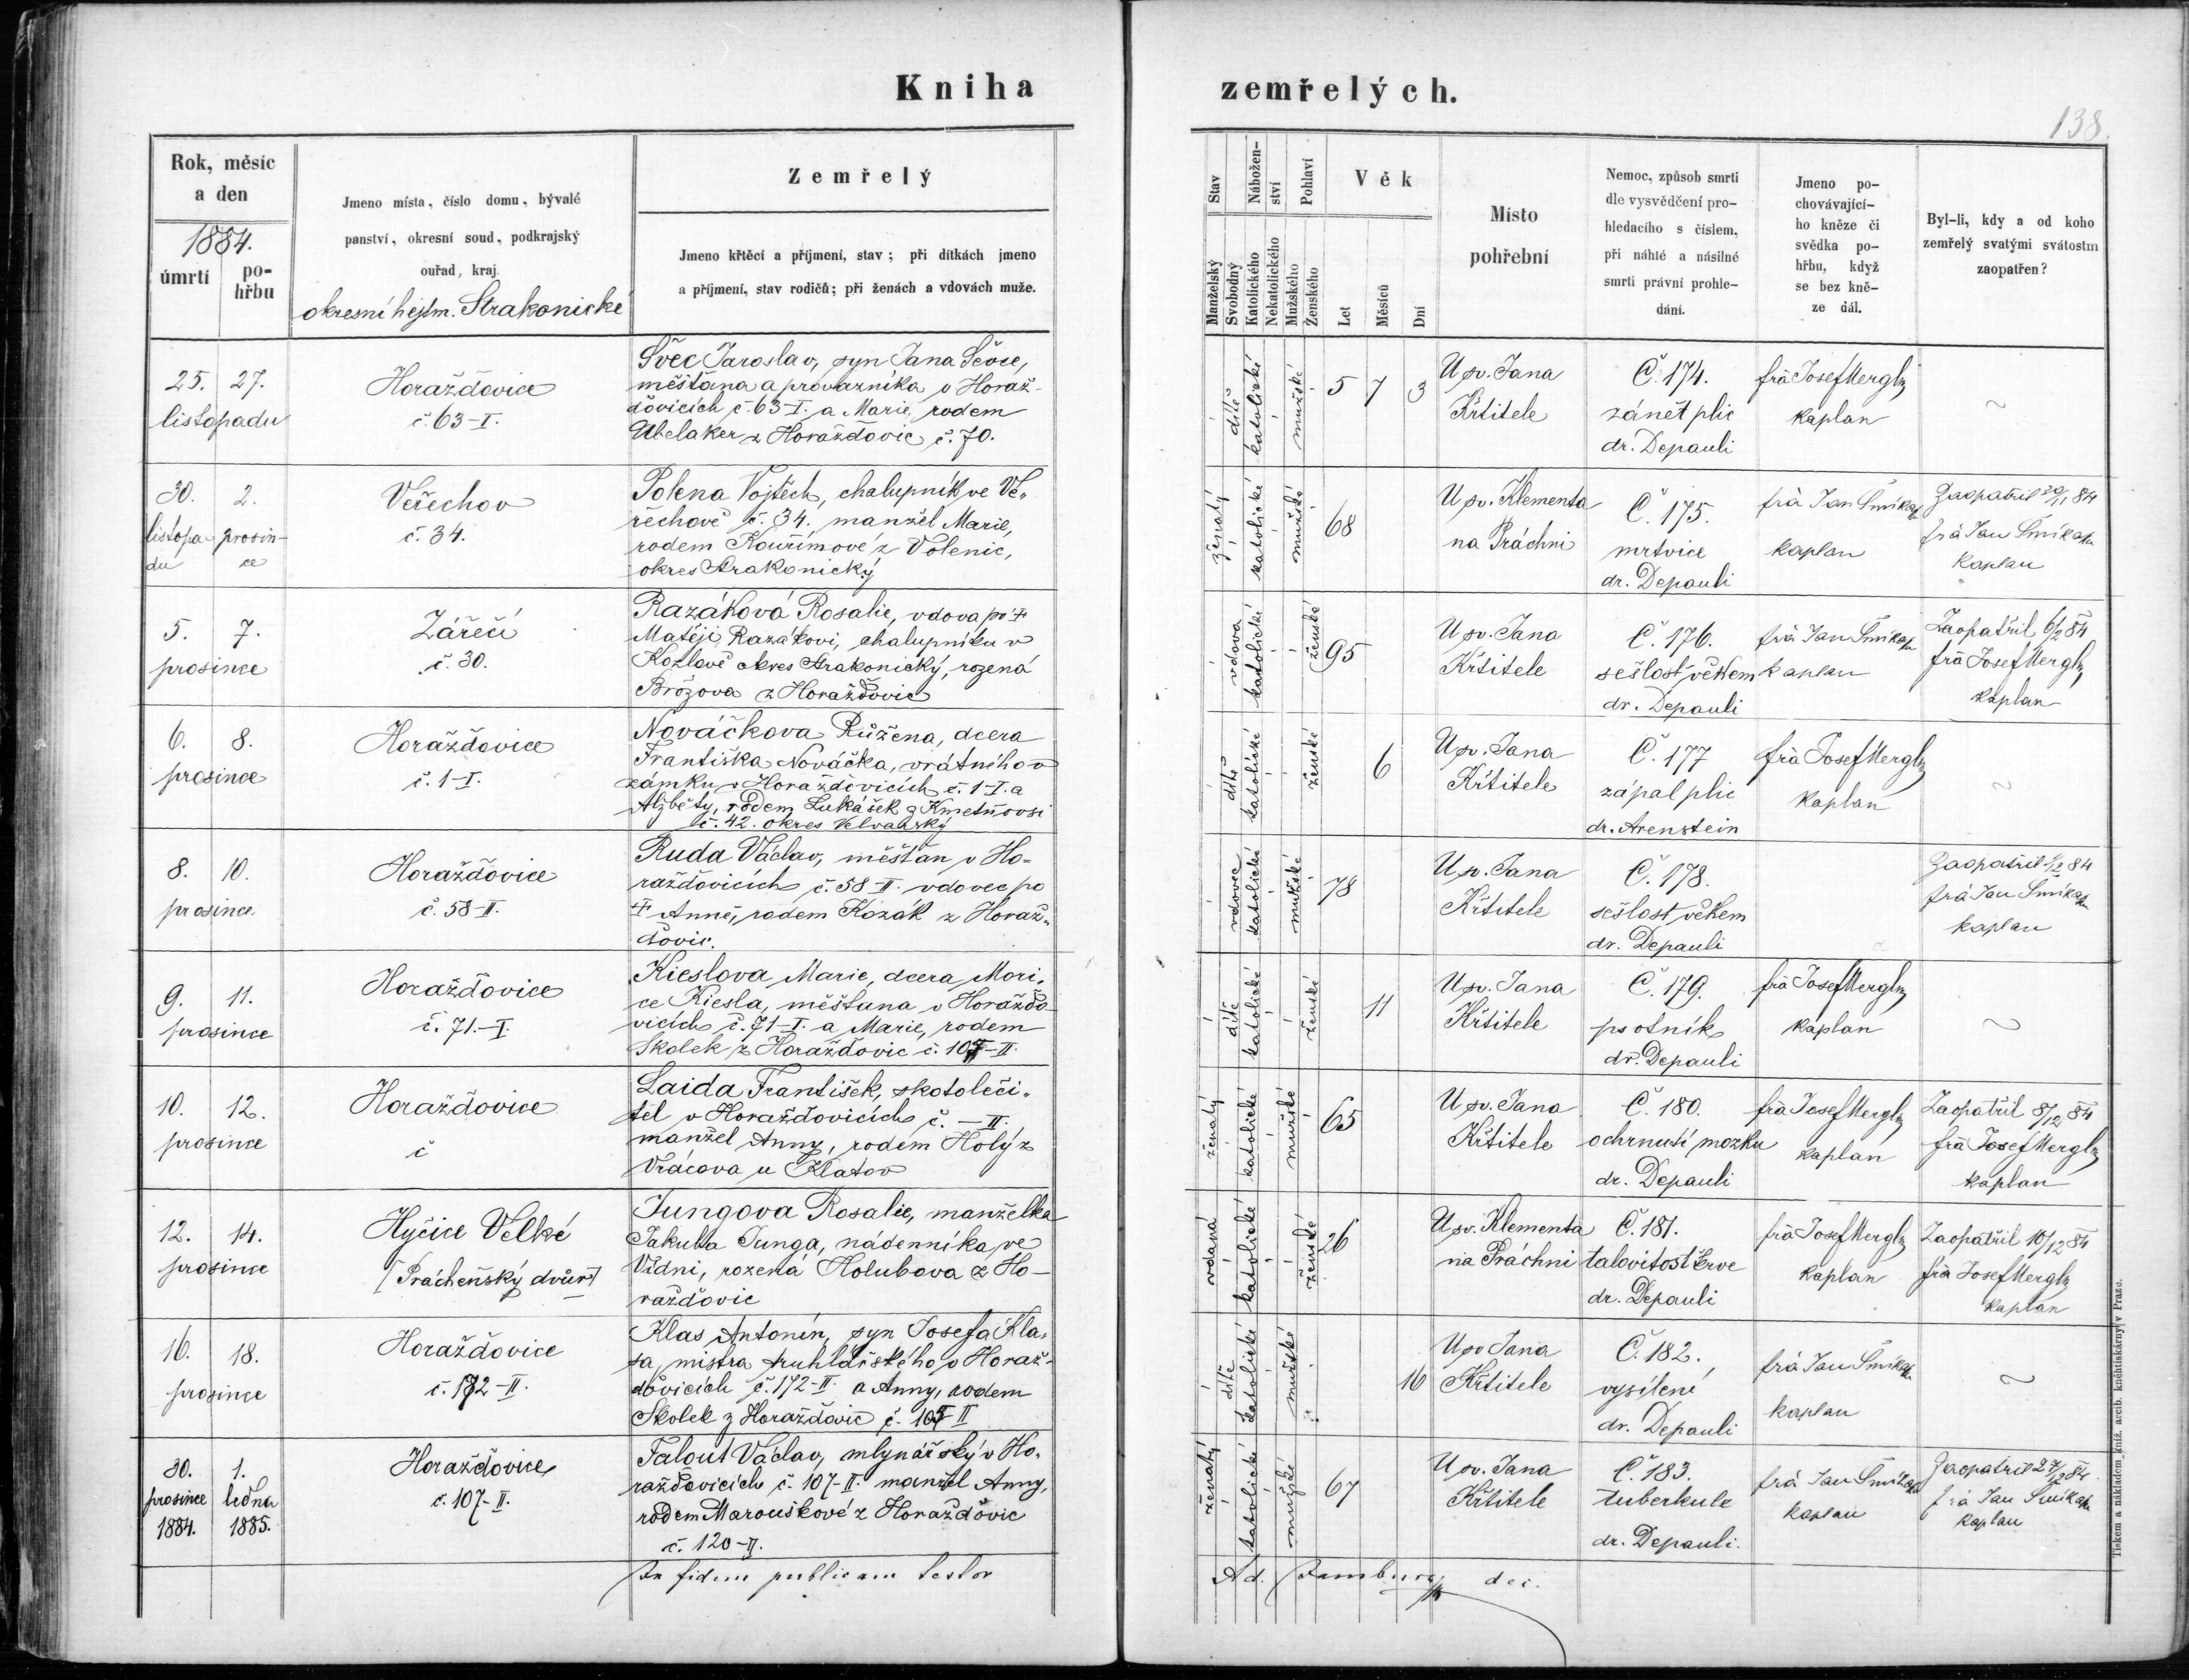 Kniha
zemřelých.
138.
Rok, měsíc
a den
1884.
úmrtí
po-
hřbu
Jmeno místa, číslo domu, bývalé
panství, okresní soud, podkrajský
ouřad, kraj.
okresní hejtm. Strakonické
Zemřelý
Jmeno křtěcí a příjmení, stav; při dítkách jmeno
a příjmení, stav rodičů; při ženách a vdovách muže.
Stav
Nábožen-
ství
Pohlaví
Věk
Manželský
Svobodný
Katolického
Nekatolického
Mužského
Ženského
Let
Měsíců
Dní
Místo
pohřební
Nemoc, způsob smrti
dle vysvědčení pro-
hledacího s číslem,
při náhlé a násilné
smrti právní prohle-
dání.
Jmeno po-
chovávající-
ho kněze či
svědka po-
hřbu, když
se bez kně-
ze dál.
Byl-li, kdy a od koho
zemřelý svatými svátostmi
zaopatřen?
25. 27.
listopadu
Horažďovice
č. 63-I.
Švec Jaroslav, syn Jana Ševce,
měšťana a provazníka v Horaž-
ďovicích č. 63-I. a Marie, rodem
Ubelaker z Horažďovic č. 70.
dítě
katolické
mužské
5 7 3
U sv. Jana
Křtitele
Č. 174.
zánět plic
dr. Depauli
frà Josef Mergl
kaplan
~
30. 2.
listopa- prosin-
du ce
Veřechov
č. 34.
Polena Vojtěch, chalupník ve Ve-
řechově č. 34. manžel Marie,
rodem Kouřímové z Volenic,
okres Strakonický
ženatý
katolické
mužské
68
U sv. Klementa
na Práchni
Č. 175.
mrtvice
dr. Depauli
frà Jan
kaplan
Zaopatřil 30/11 84
frà Jan
kaplan
5. 7.
prosince
Zářečí
č. 30.
Razáková Rosalie, vdova po †
Matěji Razákovi, chalupníku v
Kozlově okres Strakonický, rozená
Brôzova z Horažďovic
vdova
katolické
ženské
95
U sv. Jana
Křtitele
Č. 176.
sešlost věkem
dr. Depauli
frà Jan
kaplan
Zaopatřil 6/12 84
frà Josef Mergl
kaplan
6. 8.
prosince
Horažďovice
č. 1-I.
Nováčkova Růžena, dcera
Františka Nováčka, vrátného v
zámku v Horažďovicích č. 1-I. a
Alžběty, rodem Lukášek z Kmetňovsi
č. 42. okres Velvarský
dítě
katolické
ženské
6
U sv. Jana
Křtitele
Č. 177
zápal plic
dr. Arenstein
frà Josef Mergl
kaplan
~
8. 10.
prosince
Horažďovice
č. 58-II.
Ruda Václav, měšťan v Ho-
ražďovicích č. 58-II. vdovec po
† Anně, rodem Kozák z Horaž-
ďovic.
vdovec
katolické
mužské
78
U sv. Jana
Křtitele
Č. 178.
sešlost věkem
dr. Depauli
Zaopatřil
frà Jan
kaplan
9. 11.
prosince
Horažďovice
č. 71.-I.
Kieslova Marie, dcera Mori-
ce Kiesla, měšťana v Horažďo-
vicích č. 71-I. a Marie, rodem
Skolek z Horažďovic č. 107-II.
dítě
katolické
ženské
11
U sv. Jana
Křtitele
Č. 179.
psotník
dr. Depauli
frà Josef Mergl
kaplan
~
10. 12.
prosince
Horažďovice
č
Laida František, skotoléči-
tel v Horažďovicích č. — II.
manžel Anny, rodem Holý z
Vrácova u Klatov
ženatý
katolické
mužské
65
U sv. Jana
Křtitele
Č. 180.
ochrnutí mozku
dr. Depauli
frà Josef Mergl
kaplan
Zaopatřil 8/12 84
frà Josef Mergl
kaplan
12. 14.
prosince
Hyčice Velké
[Prácheňský dvůr]
Jungova Rosalie, manželka
Jakuba Junga, nádenníka ve
Vídni, rozená Holubova z Ho-
ražďovic
vdaná
katolické
ženské
26
U sv. Klementa
na Práchni
Č. 181.
talovitost krve
dr. Depauli
frà Josef Mergl
kaplan
Zaopatřil 10/12 84
frà Josef Mergl
kaplan
16. 18.
prosince
Horažďovice
č. 172-II.
Klas Antonín, syn Josefa Kla-
sa, mistra truhlářského v Horaž-
ďovicích č. 172-II. a Anny, rodem
Skolek z Horažďovic č. 107 II
dítě
katolické
mužské
16
U sv Jana
Křtitele
Č. 182.
vysílení
dr. Depauli
frà Jan
kaplan
~
30. 1.
prosince ledna
1884. 1885.
Horažďovice
č. 107-II.
Falout Václav, mlynářský v Ho-
ražďovicích č. 107-II. manžel Anny,
rodem Marouškové z Horažďovic
č. 120-II.
ženatý
katolické
mužské
67
U sv. Jana
Křtitele
Č. 183.
tuberkule
dr. Depauli.
frà Jan
kaplan
Zaopatřil 27/12 84
frà Jan
kaplan
In fidem publicam testor
Ad. dec.
Tiskem a nákladem kníž. arcib. knihtiskárny v Praze.